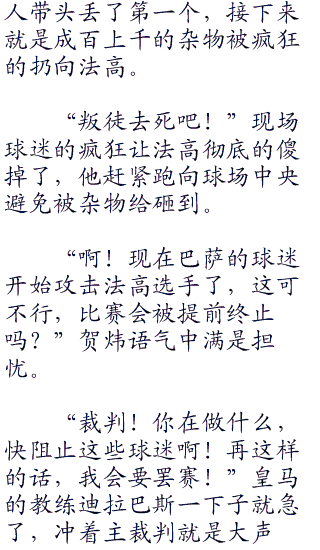 人带头丢了第一个，接下来
就是成百上千的杂物被疯狂
的扔向法高。
“叛徒去死吧！”现场
球迷的疯狂让法高彻底的傻
掉了，他赶紧跑向球场中央
避免被杂物给砸到。
“啊！现在巴萨的球迷
开始攻击法高选手了，这可
不行，比赛会被提前终止
吗？”贺炜语气中满是担
忧。
“裁判！你在做什么，
快阻止这些球迷啊！再这样
的话，我会要罢赛！”皇马
的教练迪拉巴斯一下子就急
了，冲着主裁判就是大声